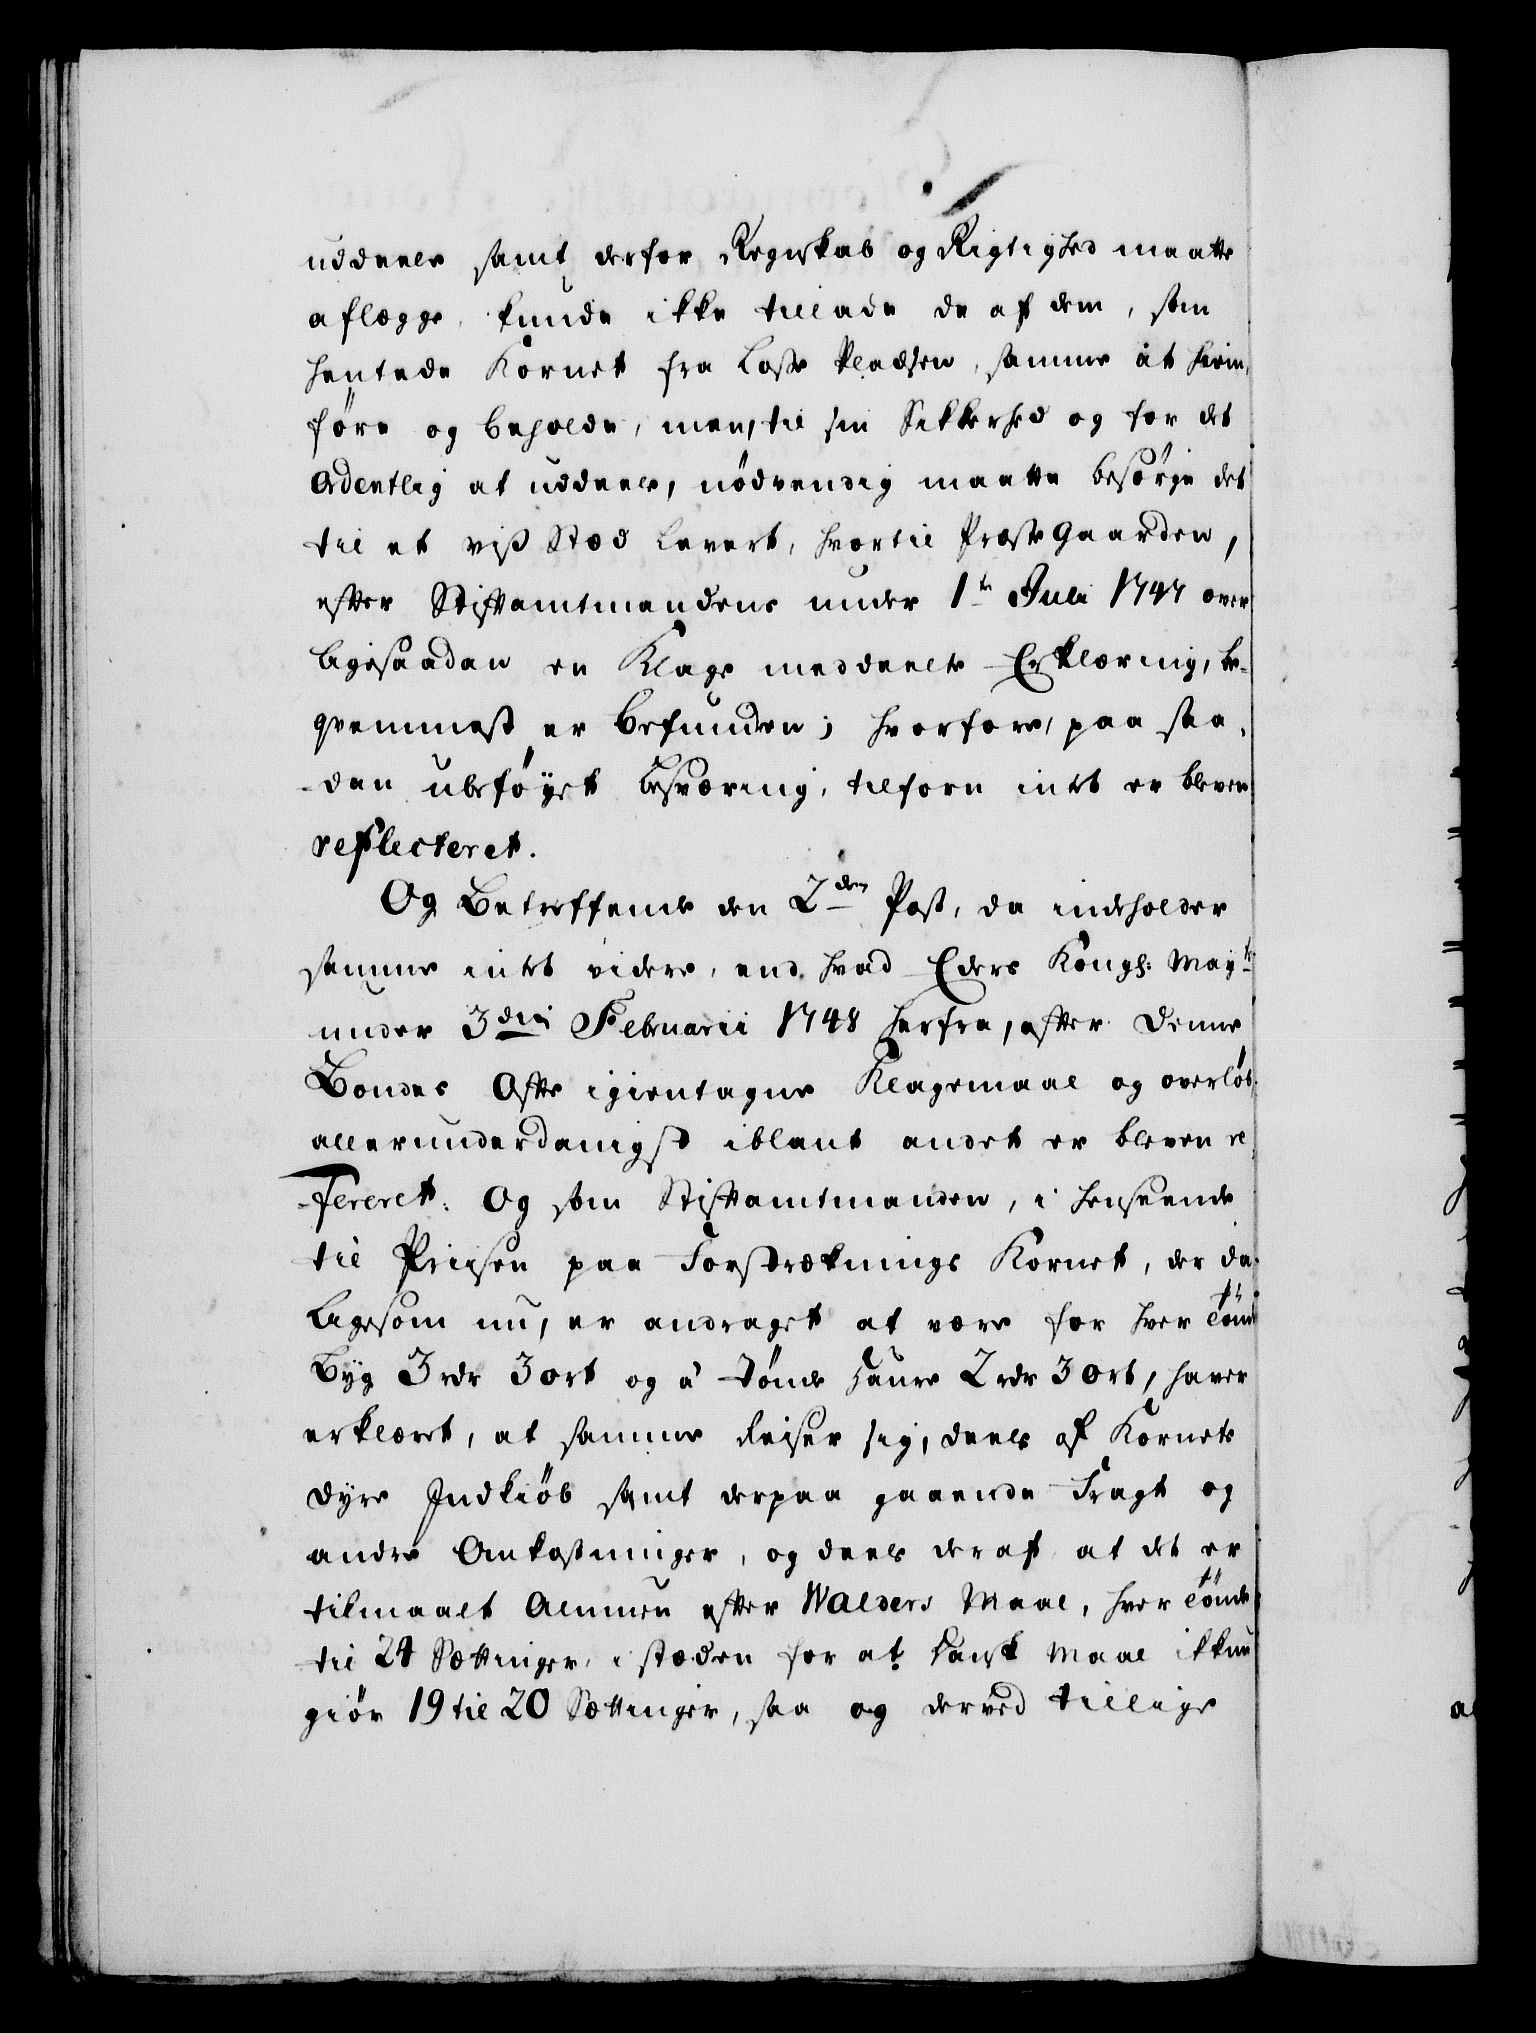 uddeele samt derfor Regnskab og Rigtighed maatte
aflægge, kunde ikke tillade de af dem, som
hentede Kornet fra Losse Pladsen, samme at hiem,
føre og beholde, men, til sin Sikkerhed og for det
Ordentlig at uddeele, nødvendig maatte besørge det
til et viß Stæd levert, hvortil Præste Gaarden,
efter Stiftamtmandens under 1te Juli 1747 over
ligesaadan en Klage meddeelte Erklæring, be-
qvemmest er befunden; hvorfore, paa saa,
dan ubeføyet Besværing, tilforn intet er bleven
reflecteret.
Og Betreffende den 2den Post, da indeholder
samme intet videre, end hvad Eders Kongl: Mayt:
under 3die Februarii 1748 herfra, efter denne
Bondes Ofte igientagne Klagemaal og overløb,
allerunderdanigst iblant andet er bleven re,
fereret: Og som Stiftamtmanden, i henseende
til Priisen paa Forstræknings Kornet, der da,
ligesom nu, er andraget at være for hver Tønde
Byg 3 rdr 3 ort og à Tønde Haure 2 rdr 3 Ort, haver
erklæret, at samme Reiser sig, deels af Kornets
dyre Indkiøb samt derpaa gaaende Fragt og
andre Omkostninger, og deels deraf at det er
tilmaalt Almuen efter Walders Maal, hver Tønde
til 24 Sættinger, i stæden for at Dansk Maal ikkun
giør 19 til 20 Sættinger, saa og derved tillige